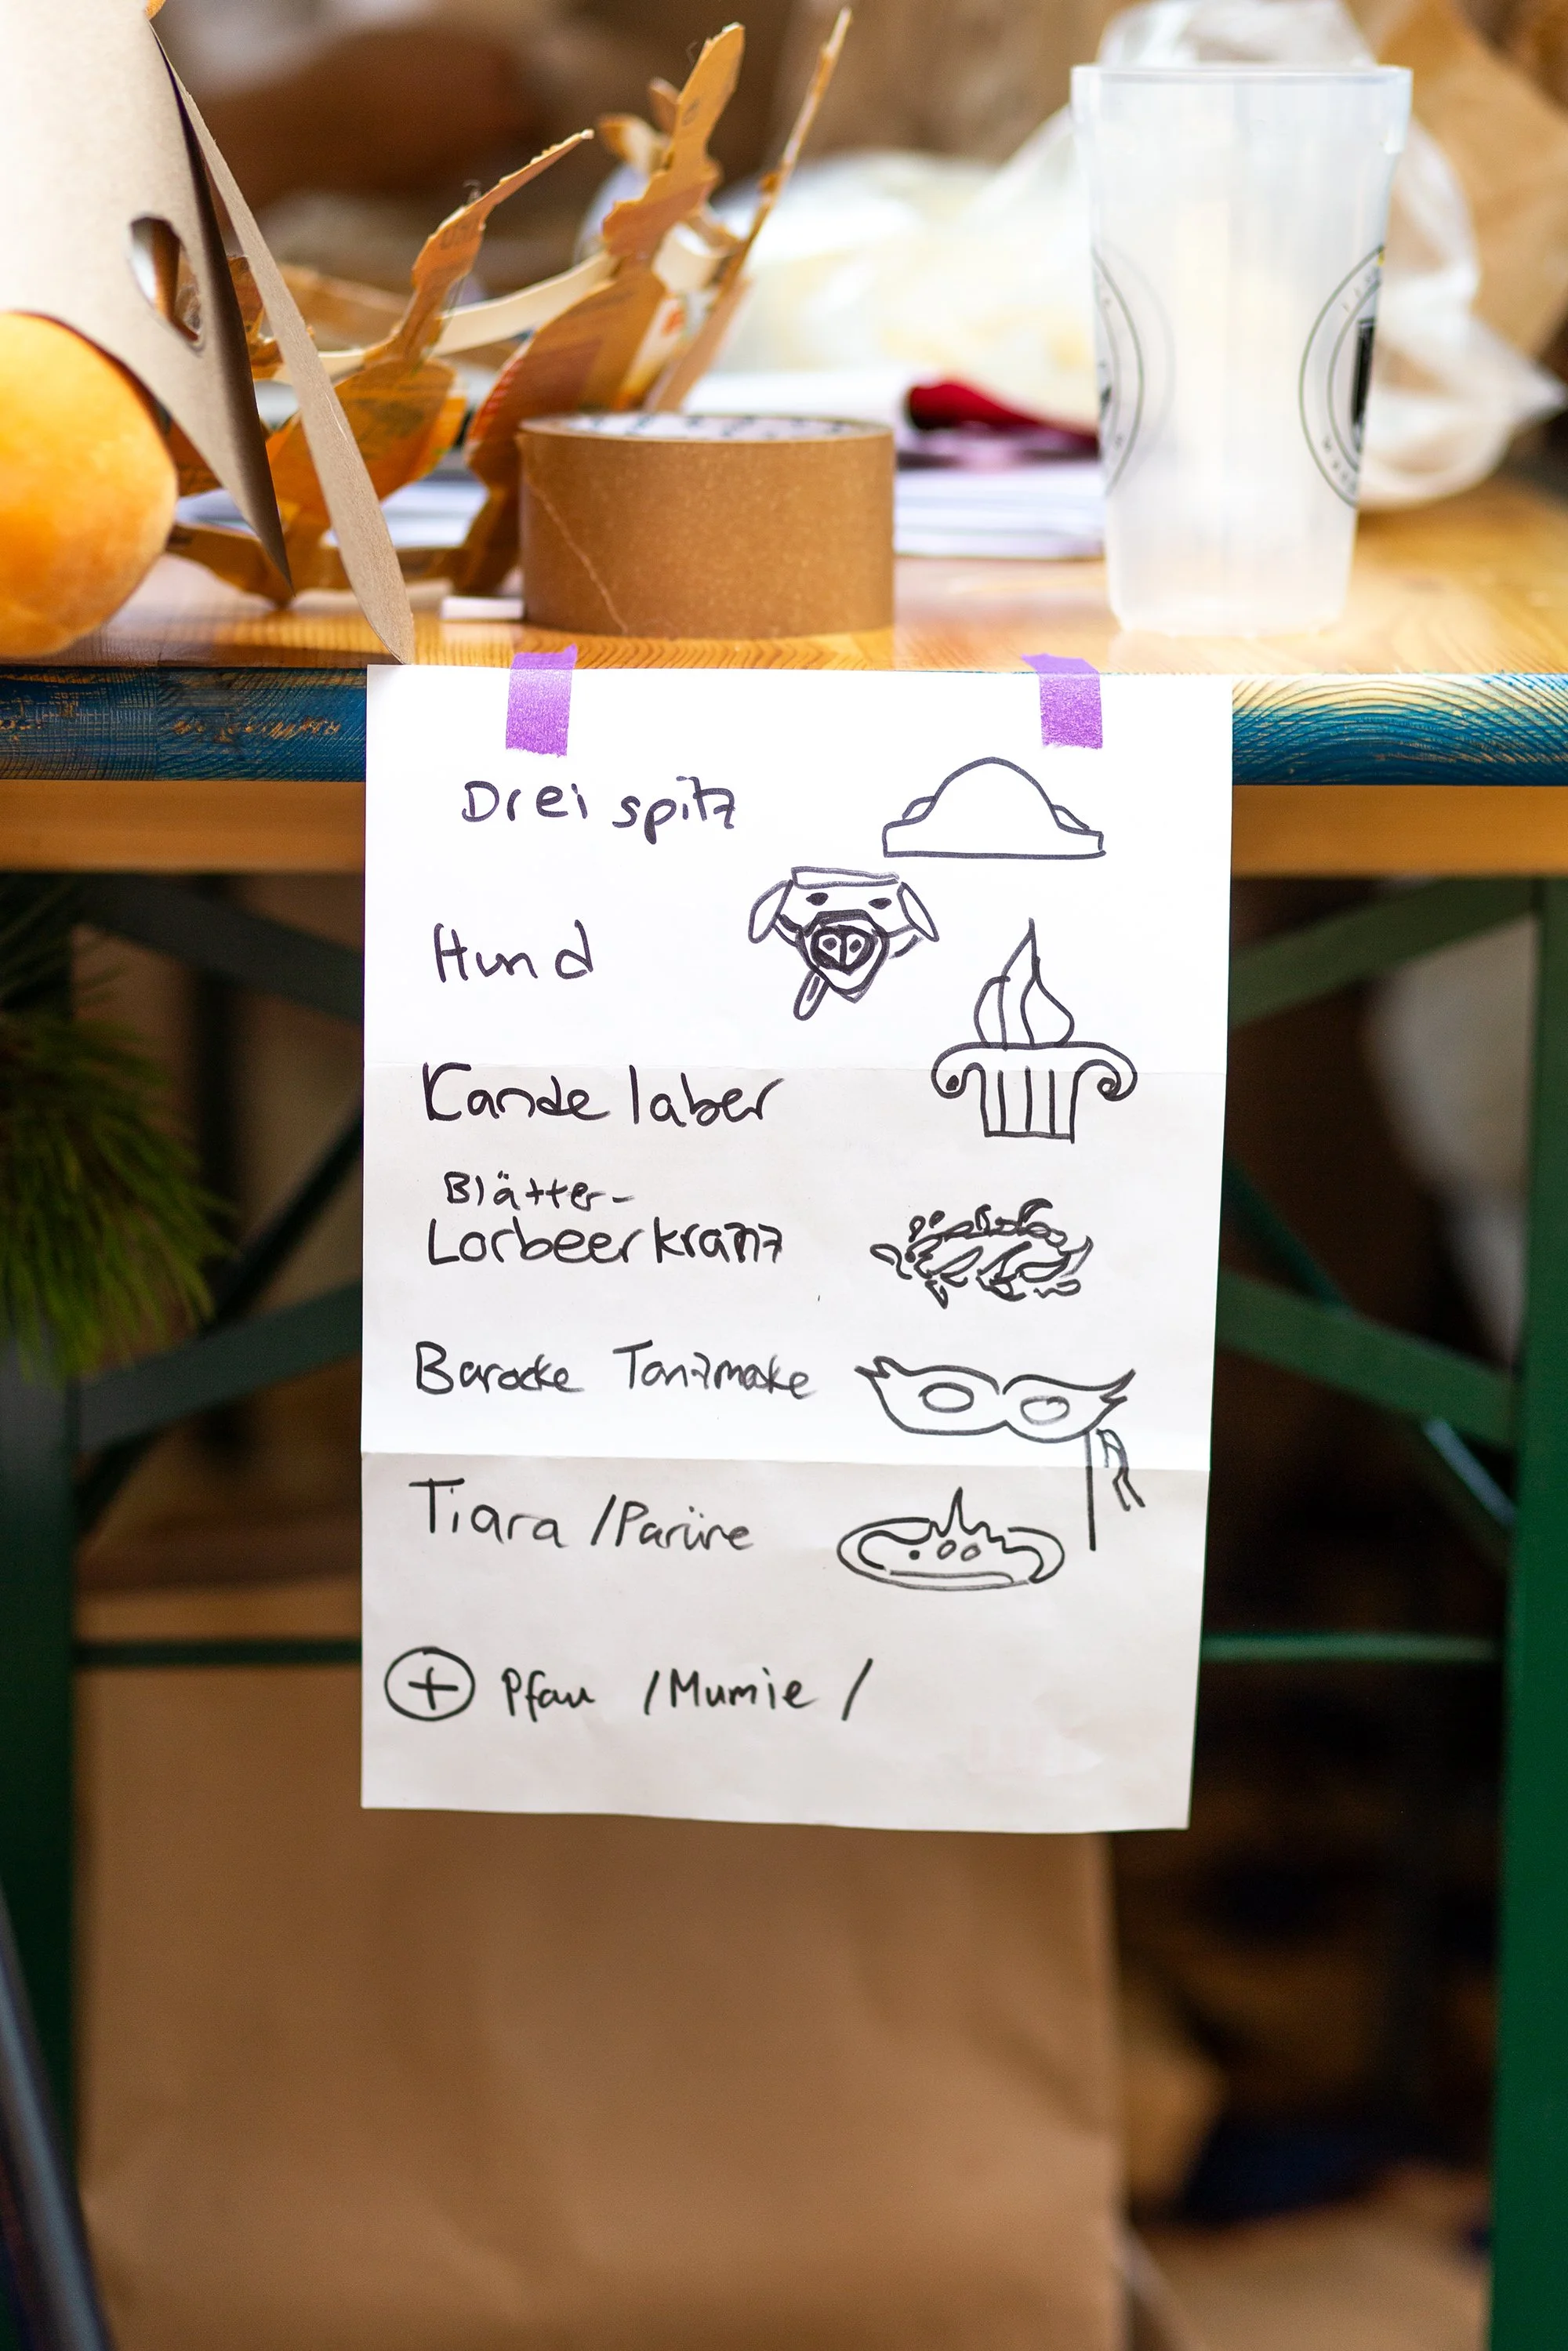 Dreispitz
Hund
Kandelaber
Blätter-
Lorbeerkranz
Barocke Tanzmaske
Tiara / Parüre
+ Pfau / Mumie /